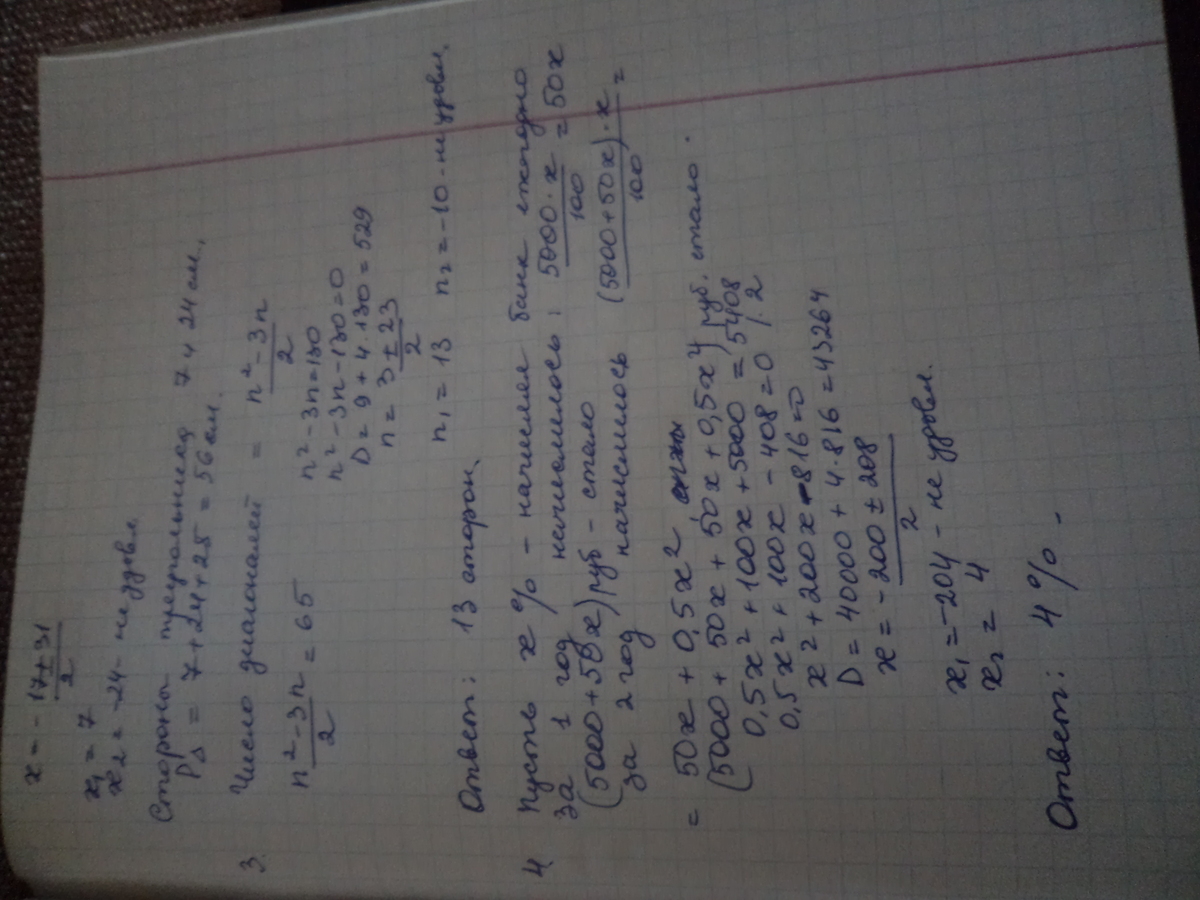 x = - 17 ± 31 / 2
x₁ = 7
x₂ = -24 - не удовл.
Стороны треугольника 7 и 24 см.
P△ = 7 + 24 + 25 = 56 см.
3. Число диагоналей = n² - 3n / 2
n² - 3n / 2 = 65
n² - 3n = 130
n² - 3n - 130 = 0
D = 9 + 4 · 130 = 529
n = 3 ± 23 / 2
n₁ = 13 n₂ = -10 - не удовл.
Ответ: 13 сторон.
4 Пусть x % - начислял банк ежегодно
за 1 год начислилось: 5000 · x / 100 = 50x
(5000 + 50x) руб - стало
за 2 год начислилось (5000 + 50x) · x / 100 =
= 50x + 0,5x²
(5000 + 50x + 50x + 0,5x²) руб. стало.
0,5x² + 100x + 5000 = 5408
0,5x² + 100x - 408 = 0 /·2
x² + 200x - 816 = 0
D = 40000 + 4·816 = 43264
x = -200 ± 208 / 2
x₁ = -204 - не удовл.
x₂ = 4
Ответ: 4 % -